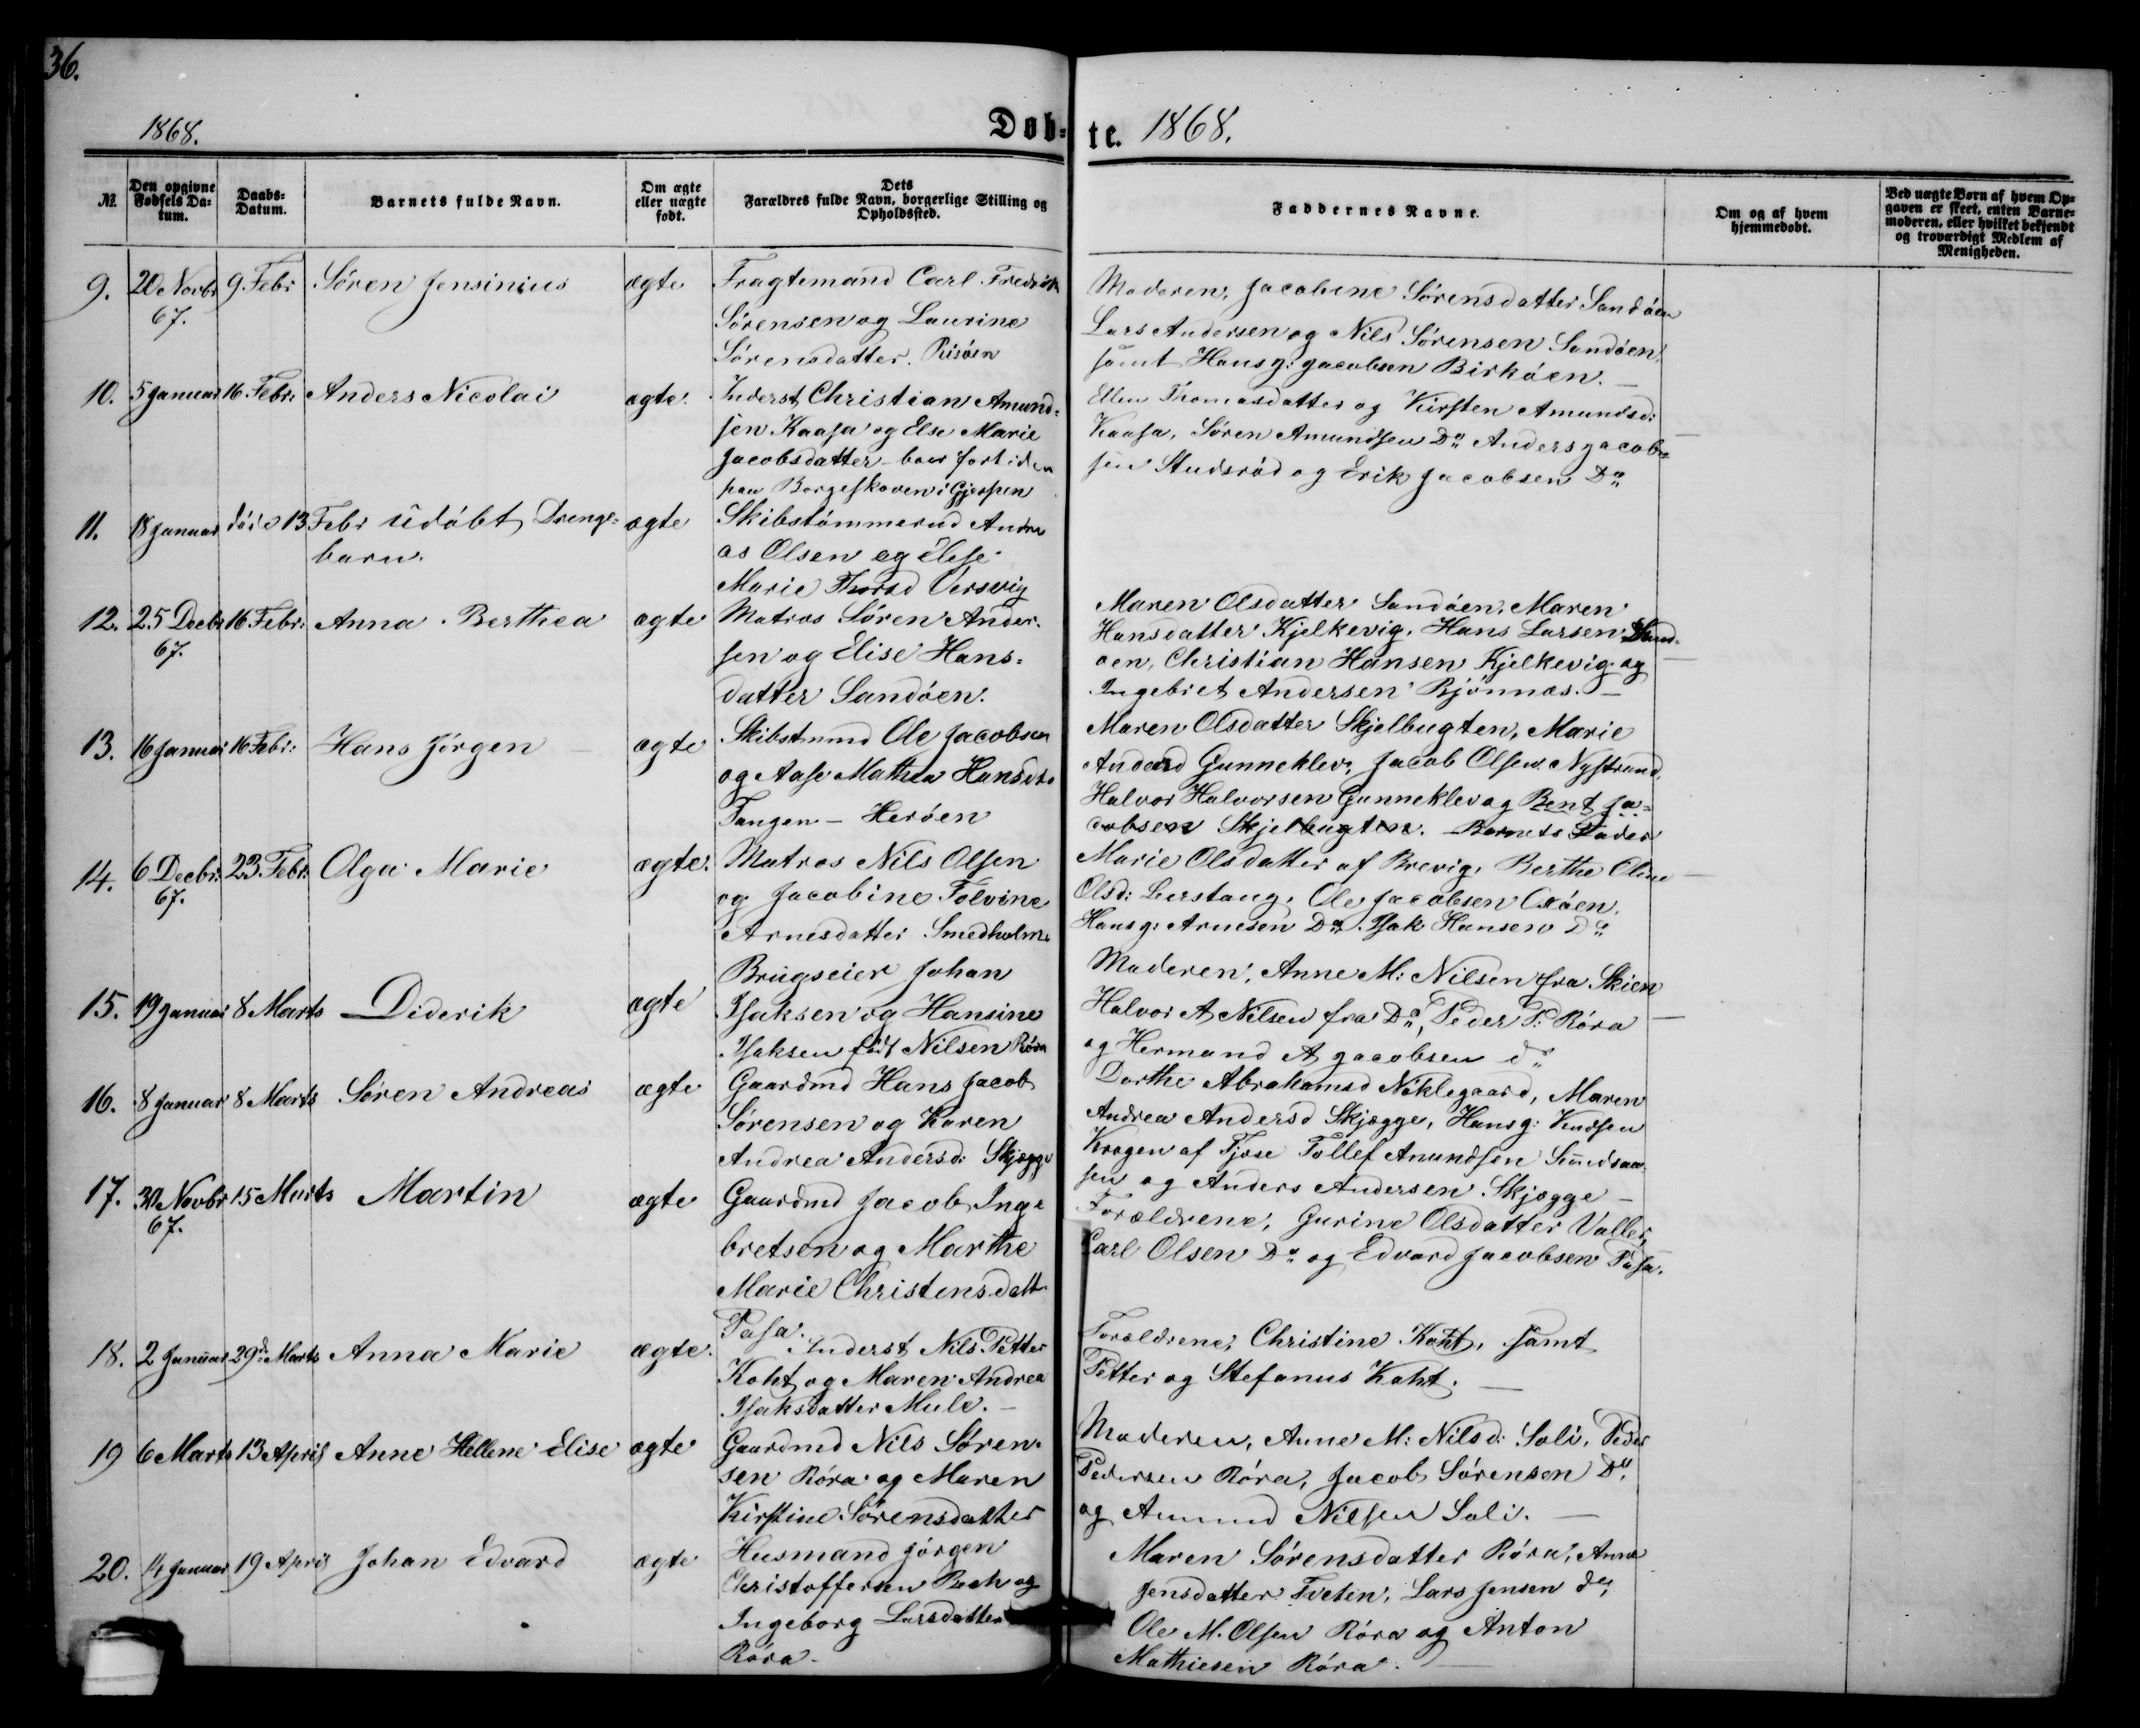 36.
1868.
Døb-
te. 1868.
№.
Den opgivne Fødsels Da-tum.
Daabs-Datum.
Barnets fulde Navn.
Om ægte eller uægte født.
Dets Forældres fulde Navn, borgerlige Stilling og Opholdssted.
Faddernes Navne.
Om og af hvem hjemmedøbt.
Ved uægte Børn af hvem Op-gaven er skeet, enten Barne-moderen, eller hvilket bekjendt og troværdigt Medlem af Menigheden.
9. 20 Novbr 67. 9 Febr Søren Jensinius ægte
Fragtemand Carl Fredrik
Sørensen og Laurine
Sørensdatter. Risøen
Moderen, Jacobine Sørensdatter Sandøen
Lars Andersen og Nils Sørensen Sandøen,
samt Hans J: Jacobsen Birkøen. —
10. 5 Januar 16 Febr: Anders Nicolai ægte.
Inderst Christian Amund-
sen Kaasa og Else Marie
Jacobsdatter - boer for tiden
paa Borgeskoven i Gjerpen
Ellen Thomasdatter og Kirsten Amundsd:
Kaasa, Søren Amundsen Do Anders Jacob-
sen Studsrød og Erik Jacobsen Do
11. 18 Januar død 13 Febr udøbt Drenge-
barn. ægte
Skibstømmermd Andre
as Olsen og Else
Marie Thorsd Versvig
12. 25 Decbr 67. 16 Febr: Anna Berthea ægte
Matros Søren Ander-
sen og Elise Hans-
datter Sandøen.
Maren Olsdatter Sandøen, Maren
Hansdatter Kjelkevig, Hans Larsen Sand-
øen, Christian Hansen Kjelkevig og
Ingebret Andersen Bjønnæs. —
13. 16 Januar 16 Febr: Hans Jørgen — ægte
Skibstmmd Ole Jacobsen
og Aase Mathea Hansdtr
Tangen - Herøen
Maren Olsdatter Skjelbugten, Marie
Andersd Gunneklev, Jacob Olsen Nystrand,
Halvor Halvorsen Gunneklev og Bent Ja-
cobsen Skjelbugten. Barnets Fader
14. 6 Decbr: 67. 23 Febr: Olga Marie ægte.
Matros Nils Olsen
og Jacobine Tolvine
Arnesdatter Smedholm
Marie Olsdatter af Brevig, Berthe Oline
Olsd: Leerstang, Ole Jacobsen Oxøen,
Hans J: Arnesen Do Isak Hansen Do
15. 19 Januar 8 Marts Diderik ægte
Brugseier Johan
Isaksen og Hansine
Isaksen født Nilsen Røra
Moderen, Anne M: Nilsen fra Skien
Halvor A Nilsen fra Do, Peder P: Røra
og Hermand A Jacobsen do
16. 8 Januar 8 Marts Søren Andreas ægte
Gaardmd Hans Jacob
Sørensen og Karen
Andrea Andersd: Skjøgge
Dorthe Abrahamsd Nøklegaard, Maren
Andrea Andersd Skjøgge, Hans J: Knudsen
Krogen af Tjøse Tollef Amundsen
sen og Anders Andersen Skjøgge —
17. 30 Novbr 67. 15 Marts Martin ægte
Gaardmd Jacob Inge-
bretsen og Marthe
Marie Christensdatt
Pasa.
Forældrene, Gurine Olsdatter Valler,
Carl Olsen Do og Edvard Jacobsen Pasa.
18. 2 Januar 29d: Marts Anna Marie ægte.
Inderst Nils Petter
Koht og Maren Andrea
Isaksdatter Mule. —
Forældrene, Christine Koht, samt
Petter og Stefanus Koht. —
19 6 Marts 13 April Anne Hellene Elise ægte
Gaardmd Nils Søren-
sen Røra og Maren
Kirstine Sørensdatter
Moderen, Anne M: Nilsd: Soli, Peder
Pedersen Røra, Jacob Sørensen Do,
og Amund Nilsen Soli. —
20. 14 Januar 19 April Johan Edvard ægte
Husmand Jørgen
Christoffersen Bech og
Ingeborg Larsdatter
Røra.
Maren Sørensdatter Røra, Anne
Jensdatter Tveten, Lars Jensen do,
Ole M. Olsen Røra og Anton
Mathiesen Røra. —